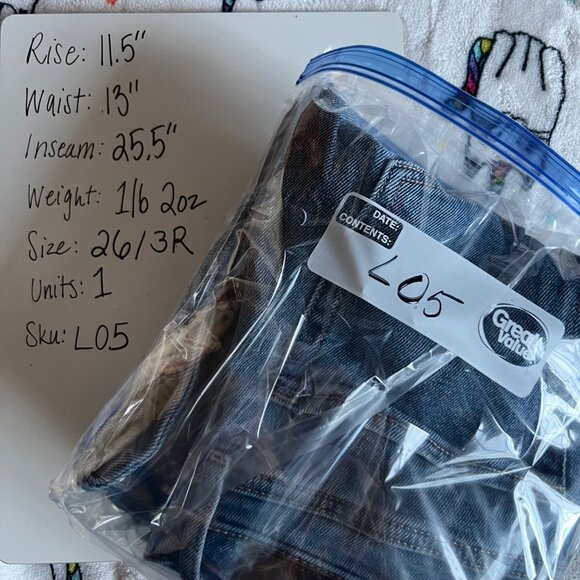 Rise: 11.5"
Waist: 13"
Inseam: 25.5"
Weight: 1lb 2oz
Size: 26/3R
Units: 1
Sku: L05
DATE:
CONTENTS:
L05
Great
Value